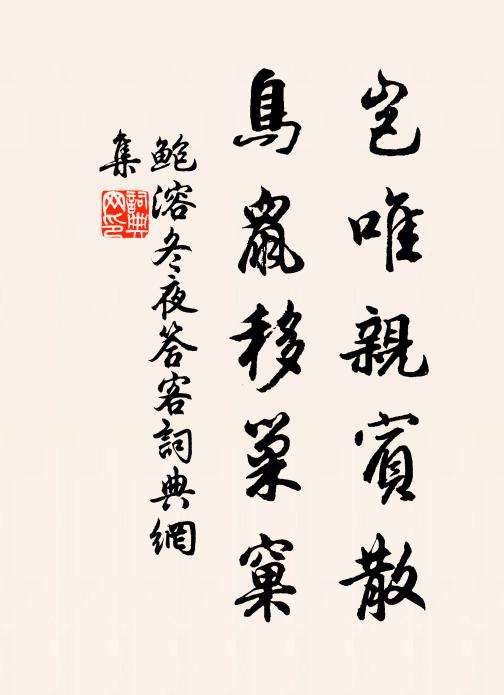 豈唯親賓散
鳥鼠移巢窠
鮑溶冬夜答客詞典網
集
詞典
网印